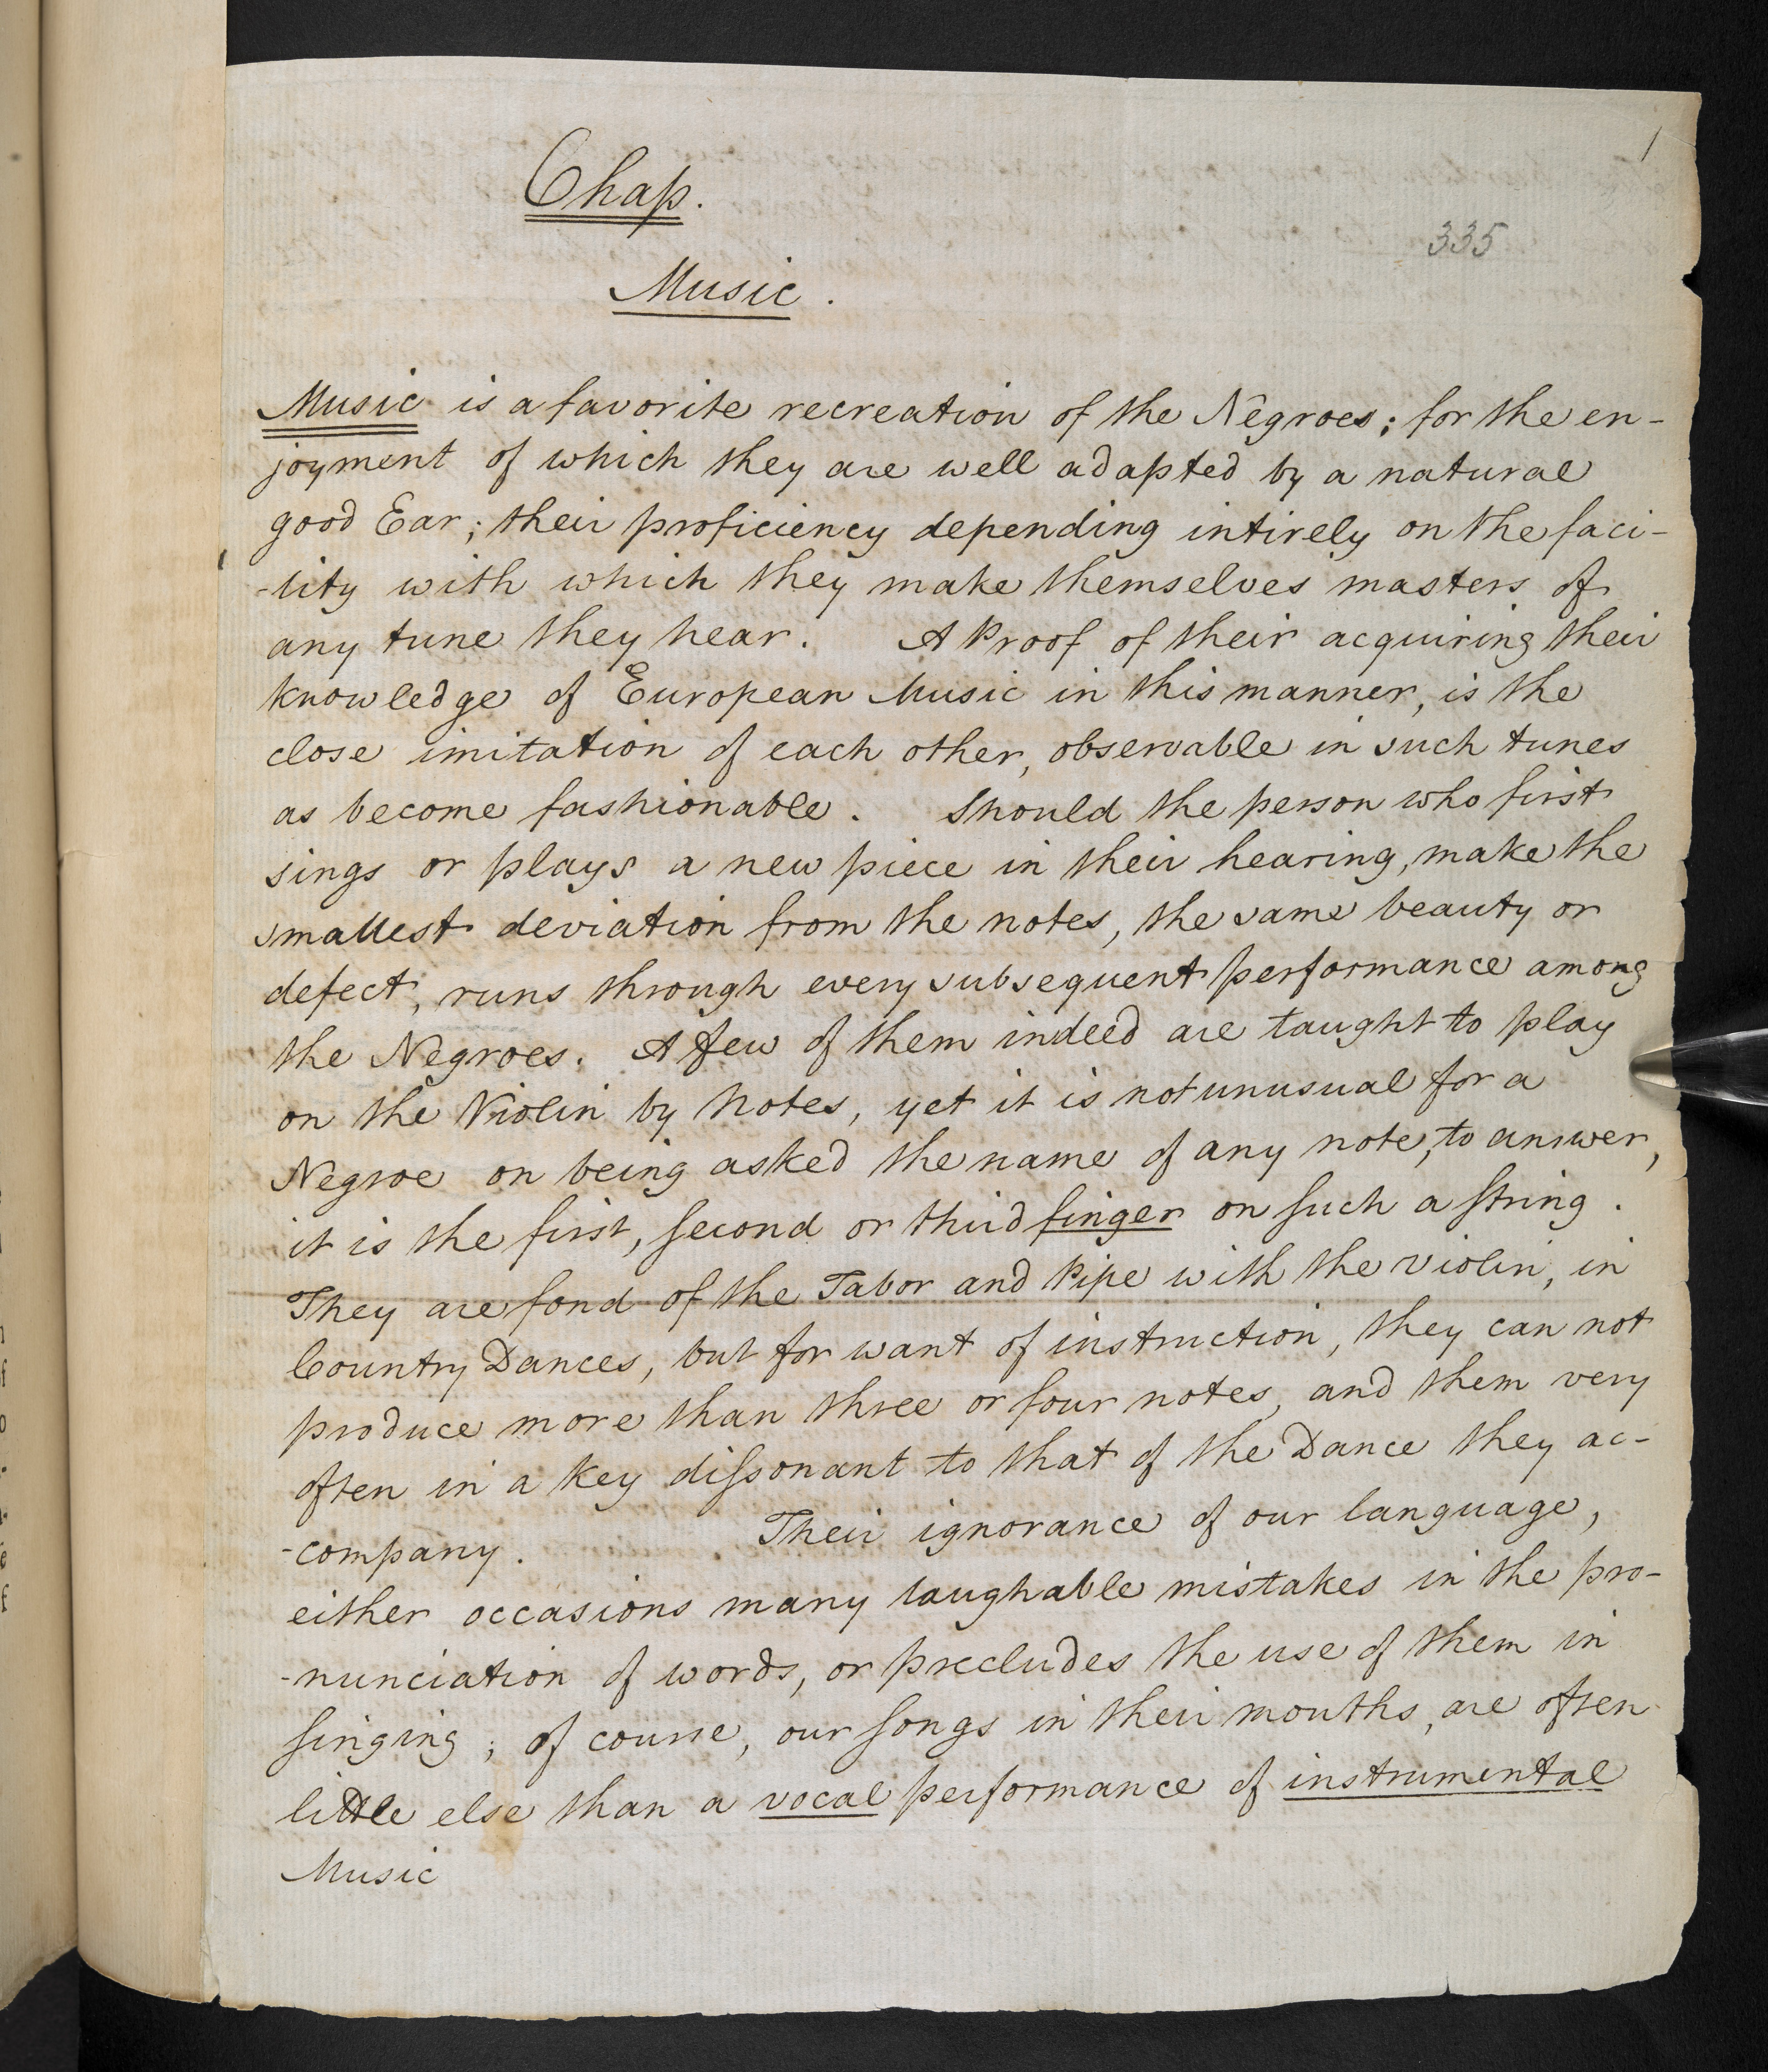 1
Chap.
335
Music.
Music is a favorite recreation of the Negroes; for the en-
joyment of which they are well adapted by a natural
good Ear; their proficiency depending intirely on the faci-
-lity with which they make themselves masters of
any tune they hear. A Proof of their acquiring their
knowledge of European Music in this manner, is the
close imitation of each other, observable in such tunes
as become fashionable. Should the person who first
sings or plays a new piece in their hearing, make the
smallest deviation from the notes, the same beauty or
defect, runs through every subsequent performance among
the Negroes. A few of them indeed are taught to play
on the Violin by Notes, yet it is not unusual for a
Negroe on being asked the name of any note, to answer,
it is the first, second or third finger on such a string.
They are fond of the Tabor and Pipe with the violin, in
Country Dances, but for want of instruction, they can not
produce more than three or four notes, and them very
often in a key dissonant to that of the Dance they ac-
-company. Their ignorance of our language,
either occasions many laughable mistakes in the pro-
-nunciation of words, or precludes the use of them in
singing; of course, our songs in their mouths, are often
little else than a vocal performance of instrumental
Music